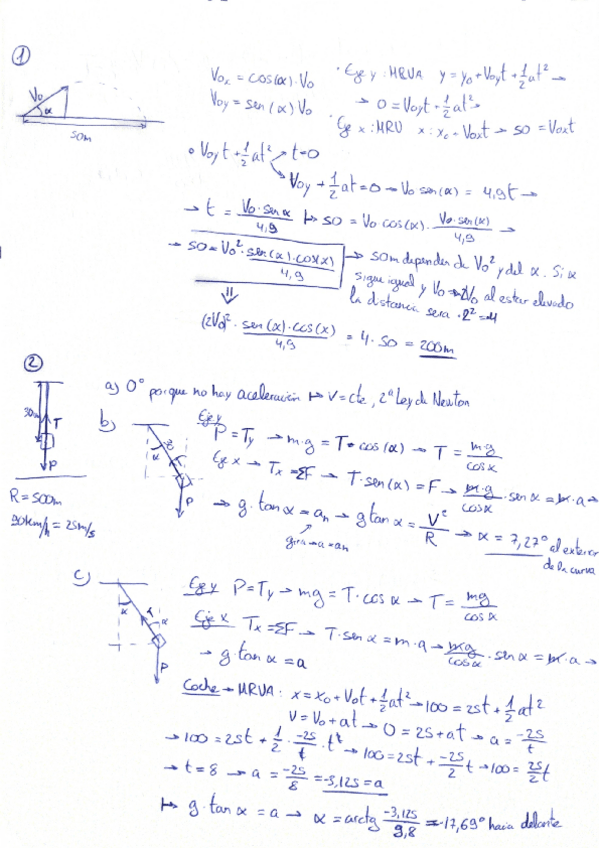 ①
V₀ α
50m
V₀ₓ = cos(α)·V₀
V₀y = sen(α)V₀
· Eje y: MRUA y = y₀ + V₀yt + 1/2at² →
→ 0 = V₀yt + 1/2at²
· Eje x: MRU x: x₀ + V₀ₓt → 50 = V₀ₓt
· V₀yt + 1/2at² → t=0
V₀y + 1/2at = 0 → V₀ sen(α) = 4,9t →
→ t = V₀·senα/4,9 ↦ 50 = V₀ cos(α)·V₀·sen(α)/4,9 →
→ 50 = V₀²·sen(α)·cos(α)/4,9 → 50m depender de V₀² y del α. Si α
sigue igual y V₀ → 2V₀ al estar elevado
la distancia sera ·2² = 4
⇓
(2V₀)²·sen(α)·cos(x)/4,9 = 4·50 = 200m
②
T
P
R = 500m
90km/h = 25m/s
a) 0° porque no hay aceleración ↦ V=cte, 2ª Ley de Newton
b)
α
P
Eje y
P = Ty → m·g = T·cos(α) → T = m·g/cosα
Eje x → Tx = ΣF → T·sen(α) = F → m·g/cosα·senα = m·a →
→ g·tanα = aₙ → g tanα = V²/R → α = 7,27° al exterior
de la curva
gira → a = aₙ
c)
α α
P
Eje y P = Ty → mg = T·cosα → T = mg/cosα
Eje x Tx = ΣF → T·senα = m·a → mg/cosα·senα = m·a →
→ g·tanα = a
Coche → MRVA: x = x₀ + V₀t + 1/2at² → 100 = 25t + 1/2at²
V = V₀ + at → 0 = 25 + at → a = -25/t
→ 100 = 25t + 1/2·-25/t·t² → 100 = 25t + -25/2t → 100 = 25/2t
→ t = 8 → a = -25/8 = -3,125 = a
↦ g·tanα = a → α = arctg -3,125/9,8 = -17,69° hacia delante